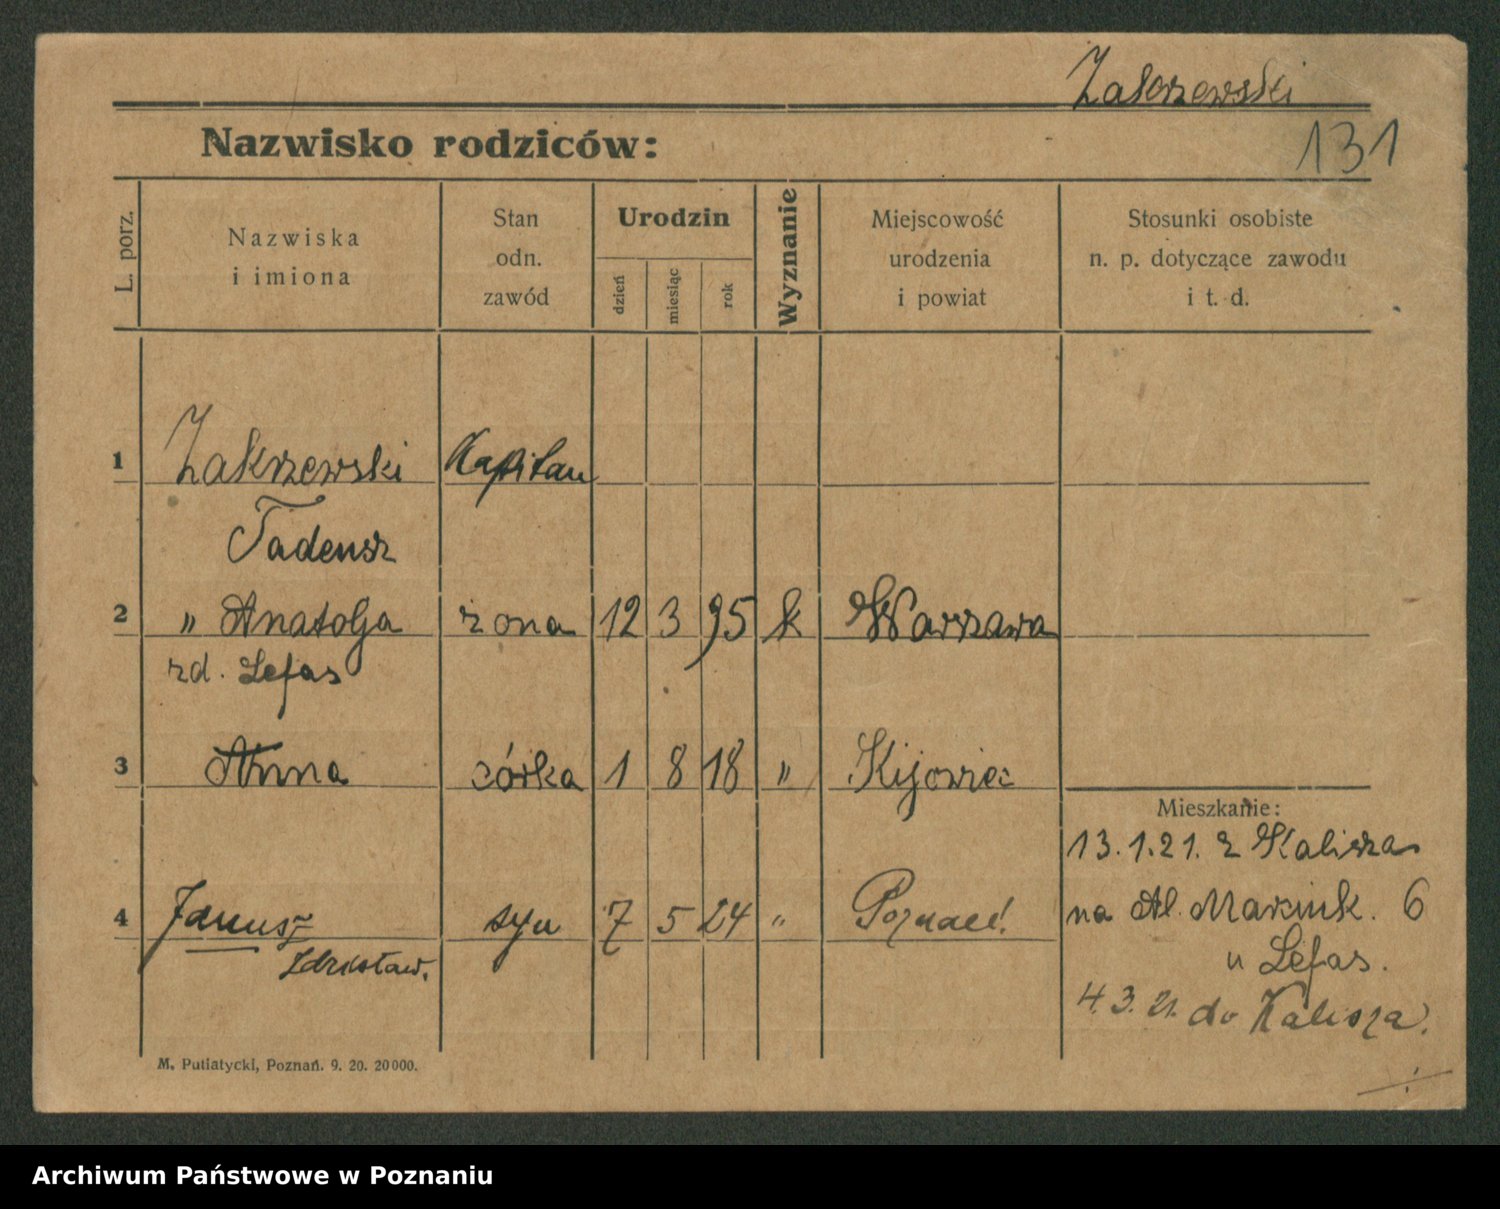 Zakrzewski
131
Nazwisko rodziców:
L. porz.
Nazwiska
i imiona
Stan
odn.
zawód
Urodzin
dzień
miesiąc
rok
Wyznanie
Miejscowość
urodzenia
i powiat
Stosunki osobiste
n. p. dotyczące zawodu
i t. d.
1 Zakrzewski Kapitan
Tadeusz
2 „ Anatolja żona 12 3 95 k Warszawa
zd. Lefas
3 Anna córka 1 8 18 „ Kijowiec
Mieszkanie:
13.1.21. z Kalisza
4 Janusz syn 7 5 24 „ Poznań!
na Al. Marcink. 6
Zdzisław.
u Lefas.
4.3.21. do Kalisza.
M. Putiatycki, Poznań. 9. 20. 20000.
Archiwum Państwowe w Poznaniu